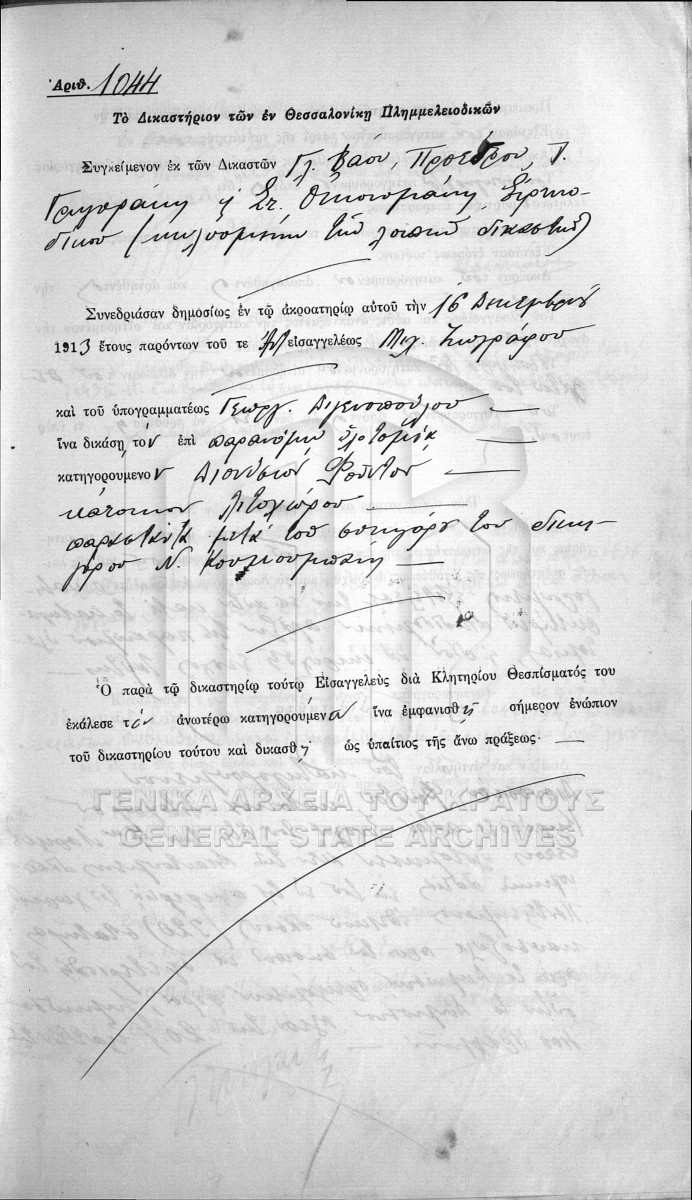 Ἀριθ. 1044
Τὸ Δικαστήριον τῶν ἐν Θεσσαλονίκῃ Πλημμελειοδικῶν
Συγκείμενον ἐκ τῶν Δικαστῶν Γλ. Βάου, Προέδρου, Γ.
Γρηγοράκη ἢ Στ. Οἰκονομάκη, Εἰρηνο-
δίκου (κωλυομένων τῶν λοιπῶν δικαστῶν)
Συνεδριάσαν δημοσίως ἐν τῷ ἀκροατηρίῳ αὐτοῦ τὴν 16 Δεκεμβρίου
1913 ἔτους παρόντων τοῦ τε Ἀντεισαγγελέως Μιχ. Ζωγράφου
καὶ τοῦ ὑπογραμματέως Γεωργ.
ἵνα δικάσῃ τὸν ἐπὶ παρανόμῳ ὑλοτομίᾳ
κατηγορούμενον Διονύσιον
κάτοικον Λιτοχώρου
παραστάντα μετὰ τοῦ συνηγόρου του δικη-
γόρου Ν.
Ὁ παρὰ τῷ δικαστηρίῳ τούτῳ Εἰσαγγελεὺς διὰ Κλητηρίου Θεσπίσματός του
ἐκάλεσε τὸν ἀνωτέρω κατηγορούμενον ἵνα ἐμφανισθῇ σήμερον ἐνώπιον
τοῦ δικαστηρίου τούτου καὶ δικασθῇ ὡς ὑπαίτιος τῆς ἄνω πράξεως.
ΓΕΝΙΚΑ ΑΡΧΕΙΑ ΤΟΥ ΚΡΑΤΟΥΣ
GENERAL STATE ARCHIVES